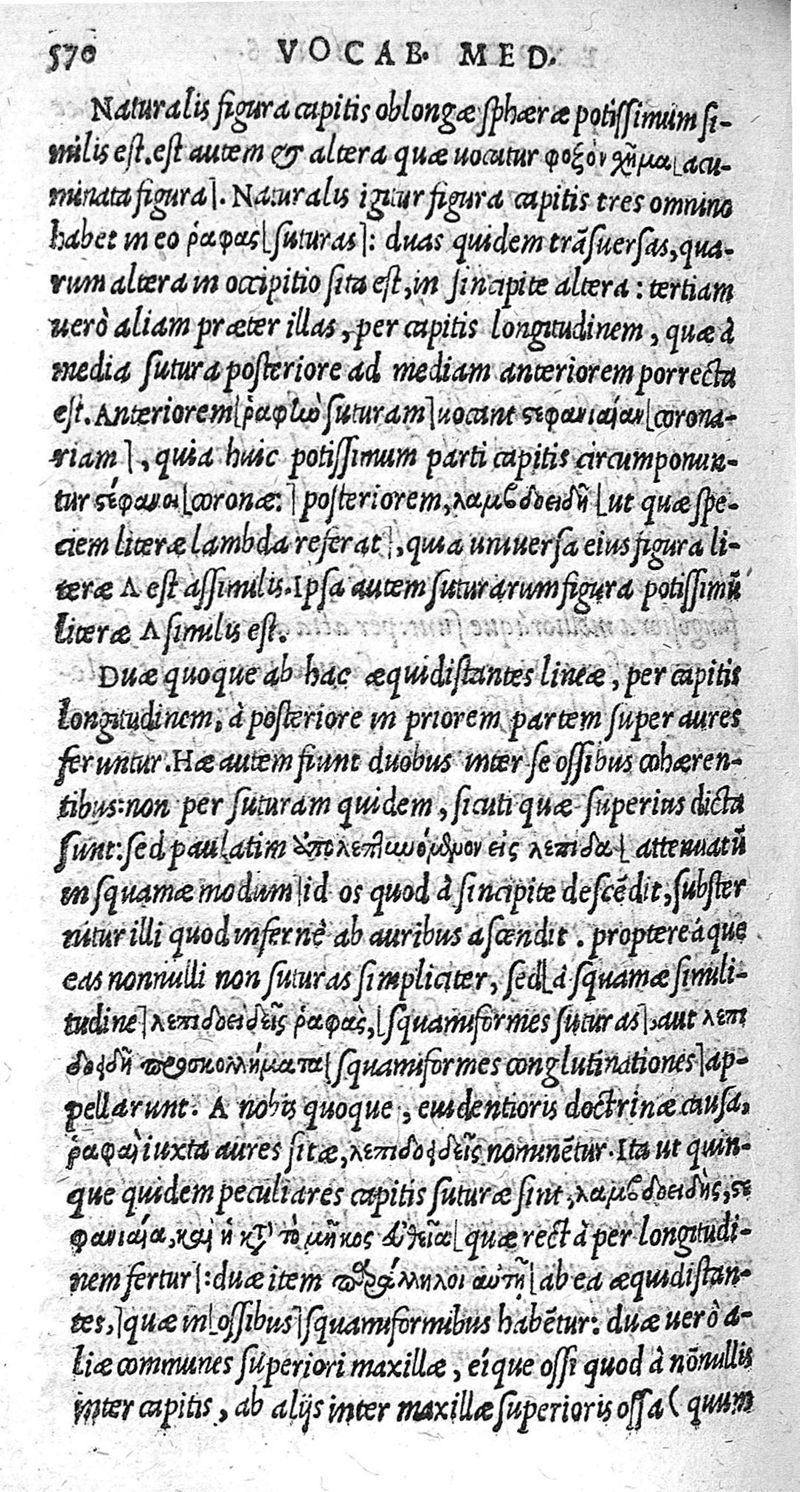 570 VOCAB. MED.
Naturalis figura capitis oblongæ sphæræ potissimum si-
milis est. est autem & altera quæ uocatur φοξὸν χῆμα[acu-
minata figura]. Naturalis igitur figura capitis tres omnino
habet in eo ῥαφας[suturas]: duas quidem trãsuersas, qua-
rum altera in occipitio sita est, in sincipite altera: tertiam
uerò aliam præter illas, per capitis longitudinem, quæ à
media sutura posteriore ad mediam anteriorem porrecta
est. Anteriorem[ῥαφlὼ suturam]uocant ϛεφανιαίαν[corona-
riam], quia huic potissimum parti capitis circumponun-
tur ϛέφανοι[coronæ:] posteriorem, λαμβδοειδῆ[ut quæ spe-
ciem literæ lambda referat], quia uniuersa eius figura li-
teræ Λ est assimilis. Ipsa autem suturarum figura potissimũ
literæ Λ similis est.
Duæ quoque ab hac æquidistantes lineæ, per capitis
longitudinem, à posteriore in priorem partem super aures
feruntur. Hæ autem fiunt duobus inter se ossibus cohæren-
tibus: non per suturam quidem, sicuti quæ superius dicta
sunt: sed paulatim ὑπολεπτυνόμενον εἰς λεπιδα[ attenuatũ
in squamæ modum]id os quod à sincipite descẽdit, subster
nũtur illi quod infernè ab auribus ascendit. proptereáque
eas nonnulli non suturas simpliciter, sed[à squamæ simili-
tudine]λεπιδοειδεῖς ῥαφας,[squamiformes suturas], aut λεπι
δοειδῆ προσκολλήματα[squamiformes conglutinationes]ap-
pellarunt. A nobis quoque, euidentioris doctrinæ causa,
ῥαφαὶ iuxta aures sitæ, λεπιδοειδεῖς nominẽtur. Ita ut quin-
que quidem peculiares capitis suturæ sint, λαμβδοειδὴς, ϛε
φανιαία, καὶ ἡ κτ̀ τὸ μῆκος εὐθεῖα[quæ rectà per longitudi-
nem fertur]: duæ item παράλληλοι αὐτῇ[ab ea æquidistan-
tes,]quæ in[ossibus]squamiformibus habẽtur: duæ uerò a-
liæ communes superiori maxillæ, eíque ossi quod à nõnullis
inter capitis, ab alijs inter maxillæ superioris ossa (quum